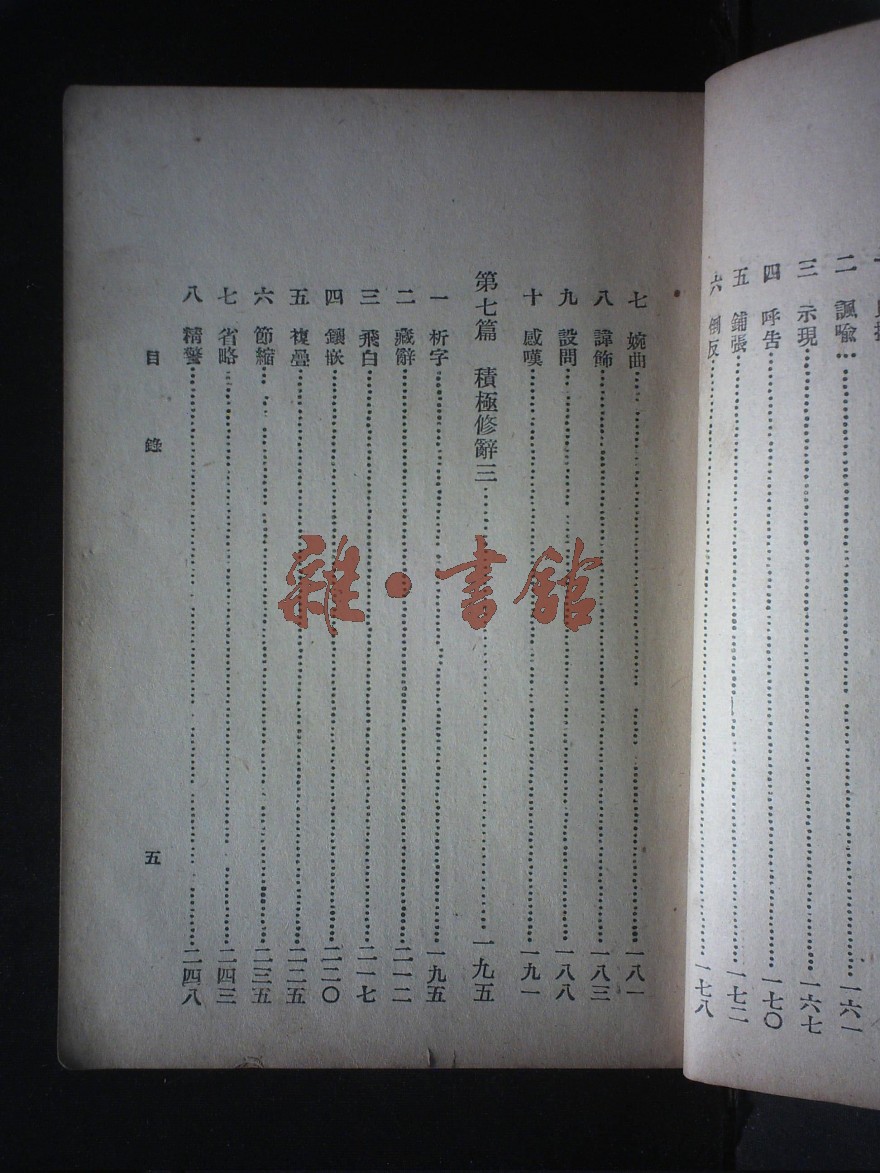 二 諷喩……一六一
三 示現……一六七
四 呼告……一七〇
五 鋪張……一七二
六 倒反……一七八
七 婉曲……一八一
八 諱飾……一八三
九 設問……一八八
十 感嘆……一九一
第七篇 積極修辭三……一九五
一 析字……一九五
二 藏辭……二一二
三 飛白……二一七
四 鑲嵌……二二〇
五 複疊……二二五
六 節縮……二三五
七 省略……二四三
八 精警……二四八
目錄
五
雜·書館